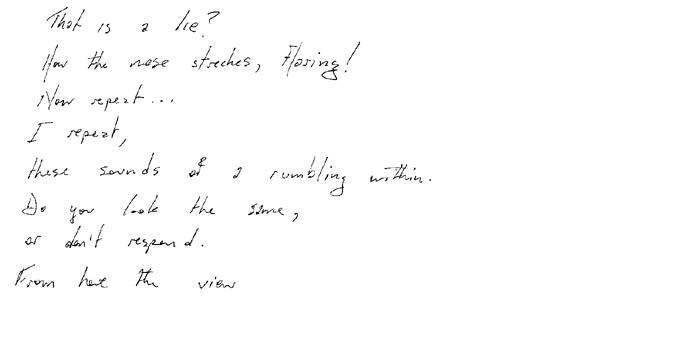 That is a lie?
How the nose streches, Floring!
Now repeat...
I repeat,
these sounds of a rumbling within.
Do you look the same,
or don't respend.
From here the view